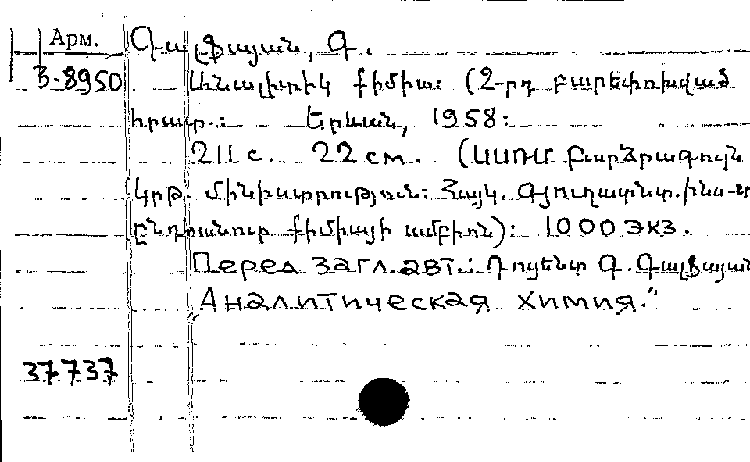 Арм. Գալֆայան, Գ.
3-8950 Անալիտիկ քիմիա: (2-րդ բարեփոխված
հրատ.: Երևան, 1958:
211 с. 22 см. (ՍՍՌՄ Բարձրագույն
կրթ. մինիստրություն: Հայկ. Գյուղատնտ. ինս-տ
ընդհանուր քիմիայի ամբիոն): 1000 экз.
Перед загл. авт.: Դոցենտ Գ. Գալֆայան
Аналитическая химия."
37737